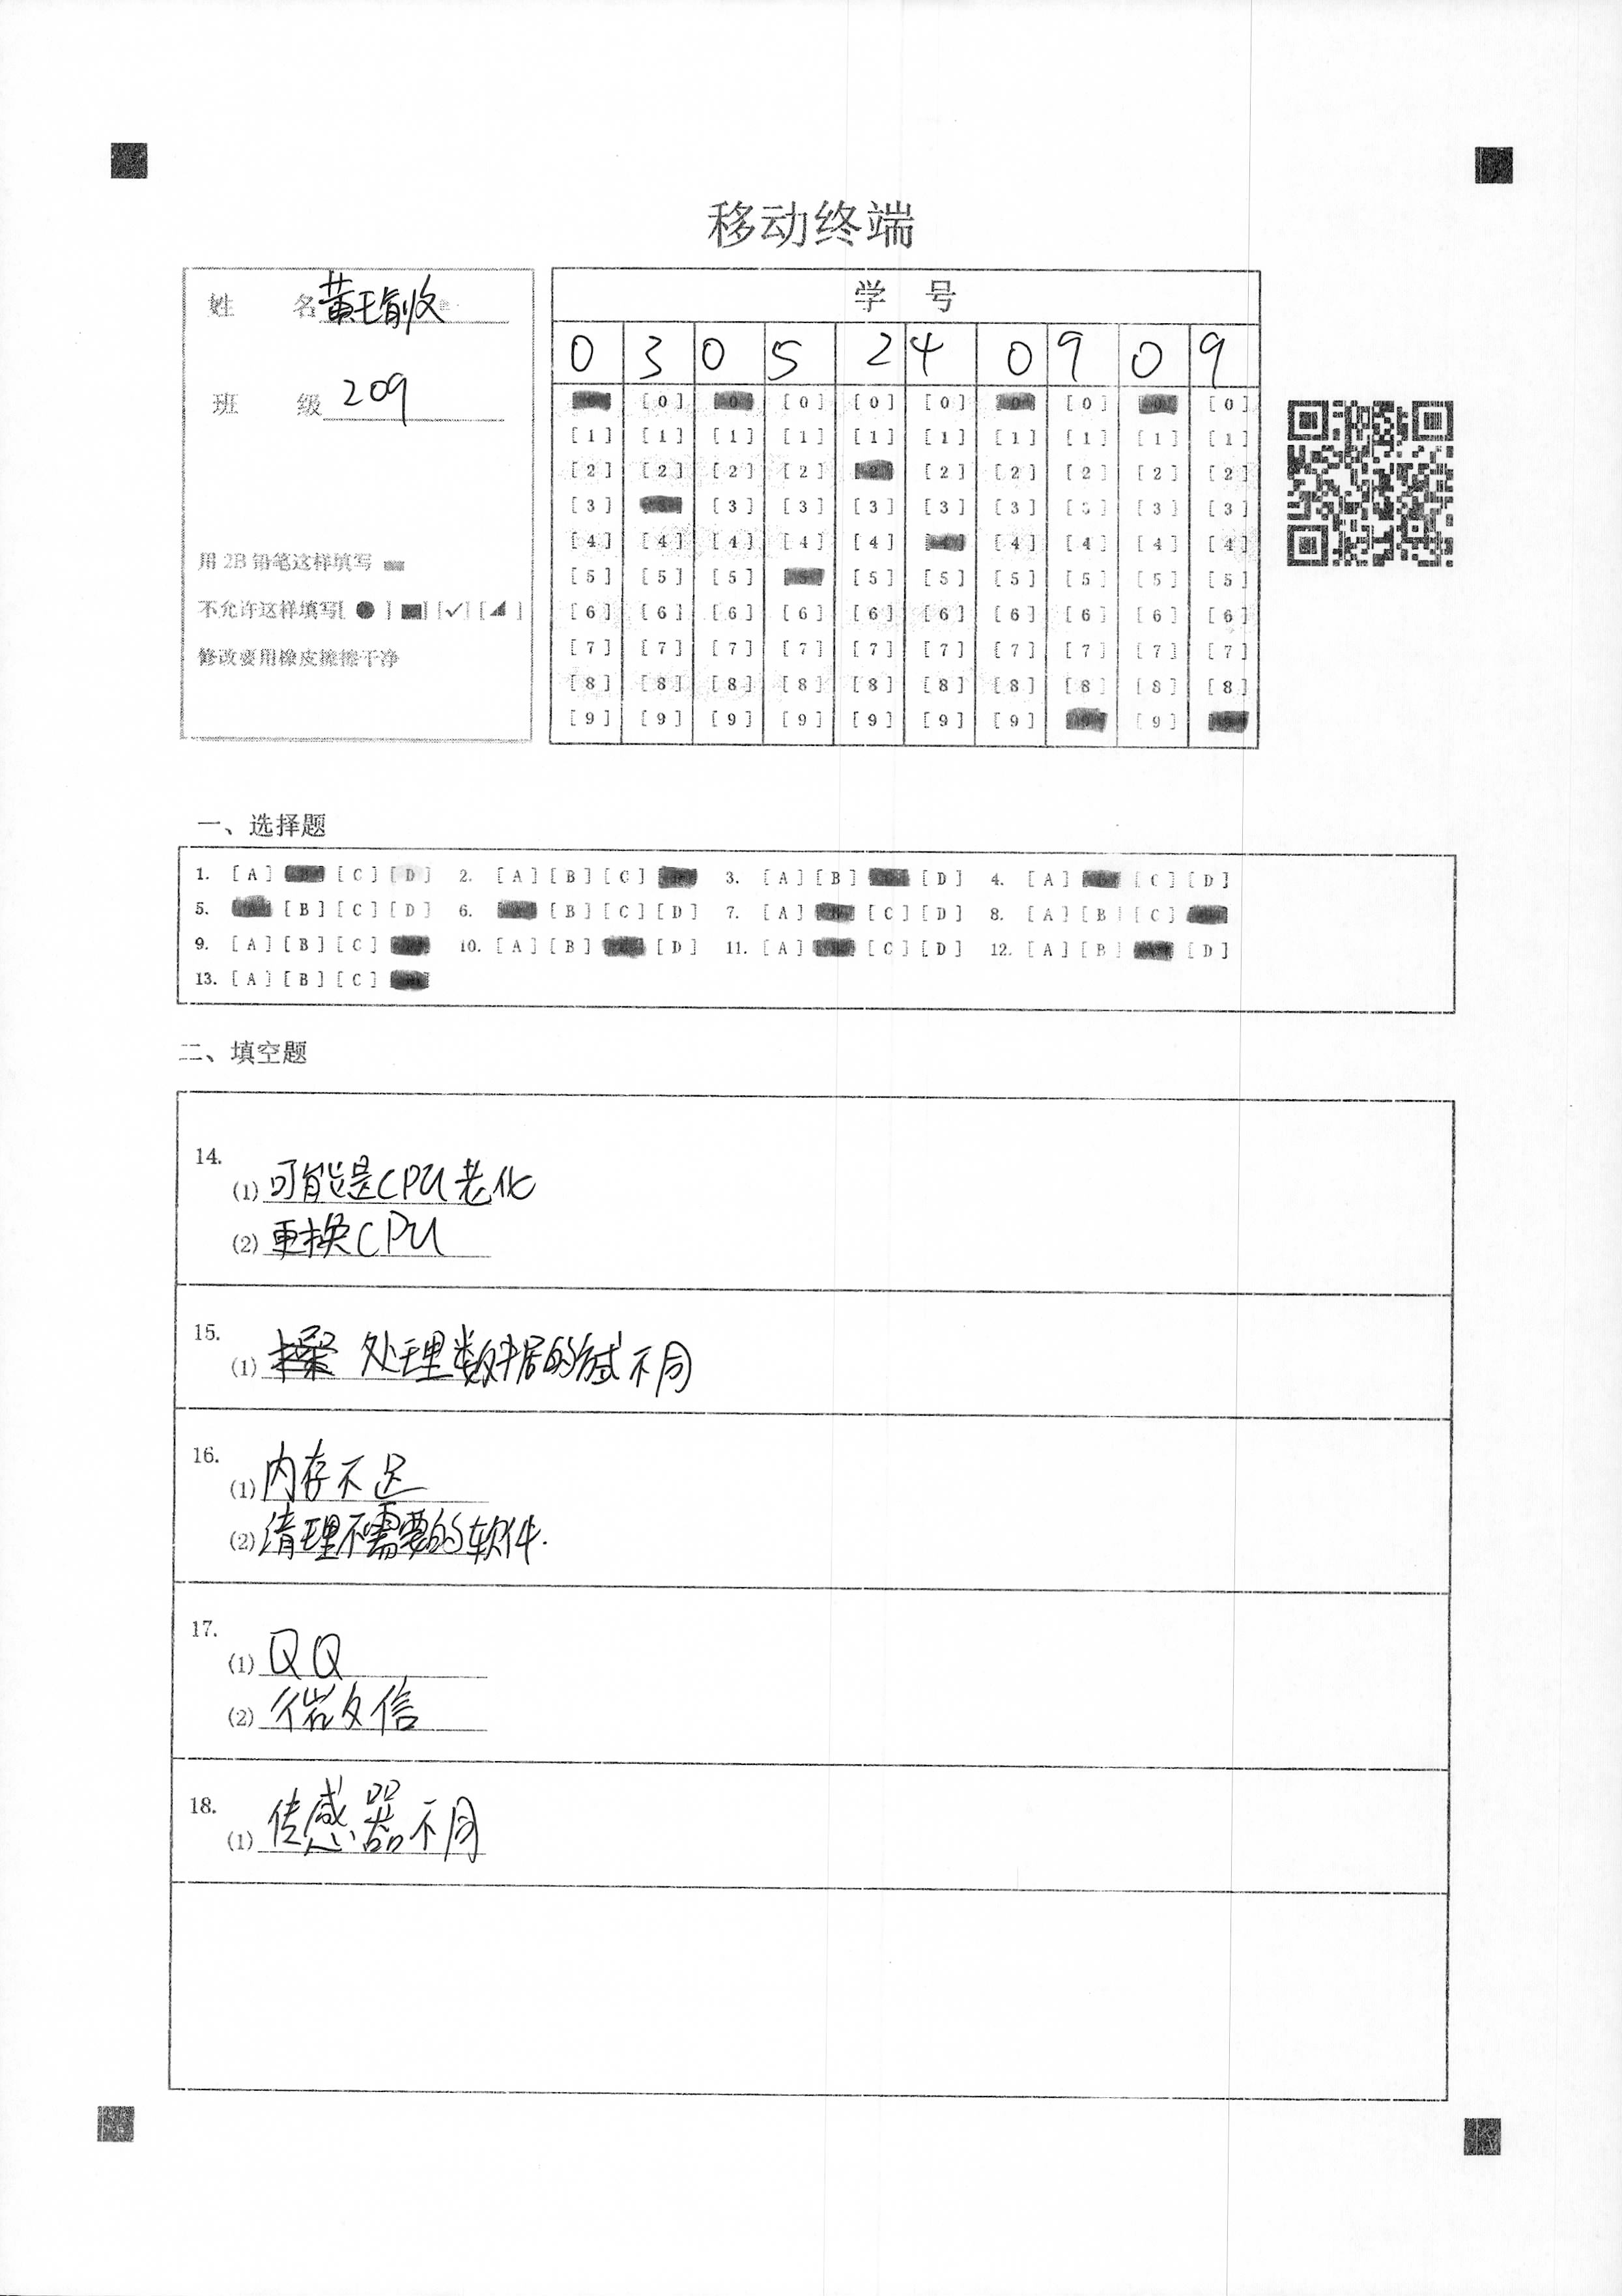 移动终端
姓 名
班 级 209
用 2B 铅笔这样填写
不允许这样填写[ ● ] [✓] [ ]
修改要用橡皮擦擦干净
学 号
0 3 0 5 2 4 0 9 0 9
[0] [0] [0] [0] [0] [0]
[1] [1] [1] [1] [1] [1] [1] [1] [1] [1]
[2] [2] [2] [2] [2] [2] [2] [2] [2] [2]
[3] [3] [3] [3] [3] [3] [3] [3] [3]
[4] [4] [4] [4] [4] [4] [4] [4] [4] [4]
[5] [5] [5] [5] [5] [5] [5] [5] [5] [5]
[6] [6] [6] [6] [6] [6] [6] [6] [6] [6]
[7] [7] [7] [7] [7] [7] [7] [7] [7] [7]
[8] [8] [8] [8] [8] [8] [8] [8] [8] [8]
[9] [9] [9] [9] [9] [9] [9] [9]
一、选择题
1. [A] [C] [D] 2. [A] [B] [C] 3. [A] [B] [D] 4. [A] [C] [D]
5. [B] [C] [D] 6. [B] [C] [D] 7. [A] [C] [D] 8. [A] [B] [C]
9. [A] [B] [C] 10. [A] [B] [D] 11. [A] [C] [D] 12. [A] [B] [D]
13. [A] [B] [C]
二、填空题
14.
(1) 可能是CPU老化
(2) 更换CPU
15.
(1) 处理数据的方式不同
16.
(1) 内存不足
(2) 清理不需要的软件.
17.
(1) QQ
(2) 微信
18.
(1) 传感器不同